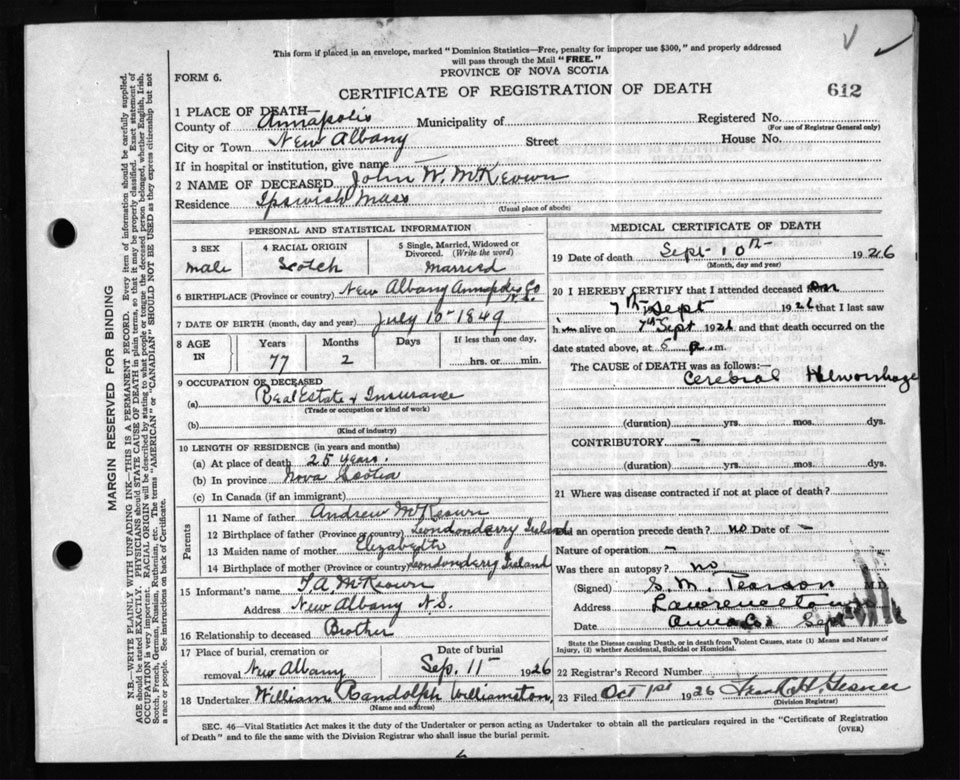 This form if placed in an envelope, marked "Dominion Statistics—Free, penalty for improper use $300," and properly addressed
will pass through the Mail "FREE."
FORM 6.
PROVINCE OF NOVA SCOTIA
CERTIFICATE OF REGISTRATION OF DEATH
612
1 PLACE OF DEATH—
County of Annapolis Municipality of Registered No.
(For use of Registrar General only)
City or Town New Albany Street House No.
If in hospital or institution, give name
2 NAME OF DECEASED John W. McKeown
Residence Ipswich Mass
(Usual place of abode)
PERSONAL AND STATISTICAL INFORMATION
3 SEX 4 RACIAL ORIGIN 5 Single, Married, Widowed or
Divorced. (Write the word)
male Scotch Married
6 BIRTHPLACE (Province or country) New Albany Annapolis Co
N.S.
7 DATE OF BIRTH (month, day and year) July 10th 1849
8 AGE IN Years Months Days If less than one day,
77 2 hrs. or min.
9 OCCUPATION OF DECEASED
(a) Real Estate & Insurance
(Trade or occupation or kind of work)
(b)
(Kind of industry)
10 LENGTH OF RESIDENCE (in years and months)
(a) At place of death 25 years.
(b) In province Nova Scotia
(c) In Canada (if an immigrant)
Parents
11 Name of father Andrew McKeown
12 Birthplace of father (Province or country) Londonderry Ireland
13 Maiden name of mother Elizabeth
14 Birthplace of mother (Province or country) Londonderry Ireland
15 Informant's name T.A. McKeown
Address New Albany N.S.
16 Relationship to deceased Brother
17 Place of burial, cremation or Date of burial
removal New Albany Sep. 11th 1926
18 Undertaker William Randolph Williamston,
(Name and address)
MEDICAL CERTIFICATE OF DEATH
19 Date of death Sept 10th 1926
(Month, day and year)
20 I HEREBY CERTIFY that I attended deceased on
7th Sept 1926 that I last saw
him alive on 7th Sept 1926 and that death occurred on
date stated above, at 5 p.m.
The CAUSE OF DEATH was as follows:—
Cerebral Hemorrhage
(duration) yrs. mos. dys.
CONTRIBUTORY —
(duration) yrs. mos. dys.
21 Where was disease contracted if not at place of death?
Did an operation precede death? no Date of —
Nature of operation —
Was there an autopsy? no
(Signed) S. M. Pearson M.D.
Address Lawrencetown
Date Sept
State the Disease causing Death, or in death from Violent Causes, state (1) Means and Nature of
Injury, (2) whether Accidental, Suicidal or Homicidal.
22 Registrar's Record Number
23 Filed Oct 1st 1926 Frank H. Gesner
(Division Registrar)
SEC. 46—Vital Statistics Act makes it the duty of the Undertaker or person acting as Undertaker to obtain all the particulars required in the "Certificate of Registration
of Death" and to file the same with the Division Registrar who shall issue the burial permit.
(OVER)
MARGIN RESERVED FOR BINDING
N.B.—WRITE PLAINLY WITH UNFADING INK—THIS IS A PERMANENT RECORD. Every item of information should be carefully supplied.
AGE should be stated EXACTLY. PHYSICIANS should STATE CAUSE OF DEATH in plain terms, so that it may be properly classified. Exact statement of
OCCUPATION is very important. RACIAL ORIGIN will be described by stating to what people or tongue the deceased person belonged, whether English, Irish,
Scotch, French, German, Russian, Ruthenian, etc. The terms "AMERICAN" or "CANADIAN" SHOULD NOT BE USED as they express citizenship but not
a race or people. See instructions on back of Certificate.